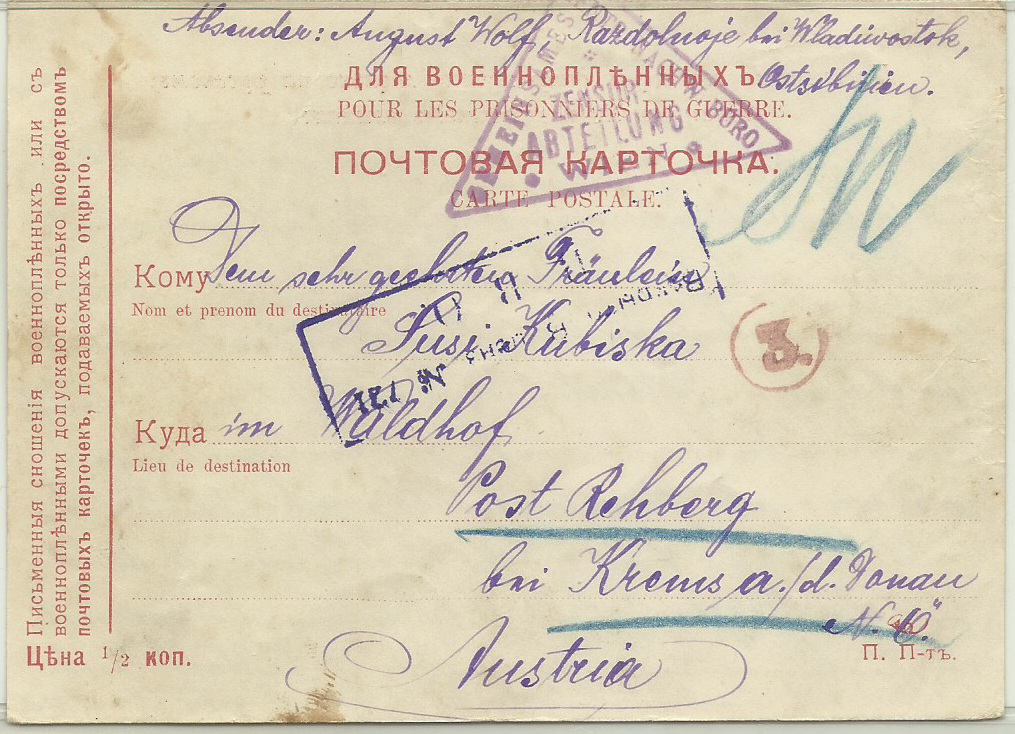 Absender: August Wolf, Razdolnoje bei Wladiwostok,
Ostsibirien.
ДЛЯ ВОЕННОПЛѢННЫХЪ
POUR LES PRISONNIERS DE GUERRE.
ПОЧТОВАЯ КАРТОЧКА.
CARTE POSTALE.
ZENSUR-
ABTEILUNG
WIEN
Кому Dem sehr geehrten Fräulein
Nom et prenom du destinataire
Susi Kubiska
3.
№ 121
Куда im Waldhof
Lieu de destination
Post Rehberg
bei Krems a./d. Donau
N. Ö.
Austria
П. П-тъ.
Письменныя сношенія военноплѣнныхъ или съ
военноплѣнными допускаются только посредствомъ
почтовыхъ карточекъ, подаваемыхъ открыто.
Цѣна 1/2 коп.